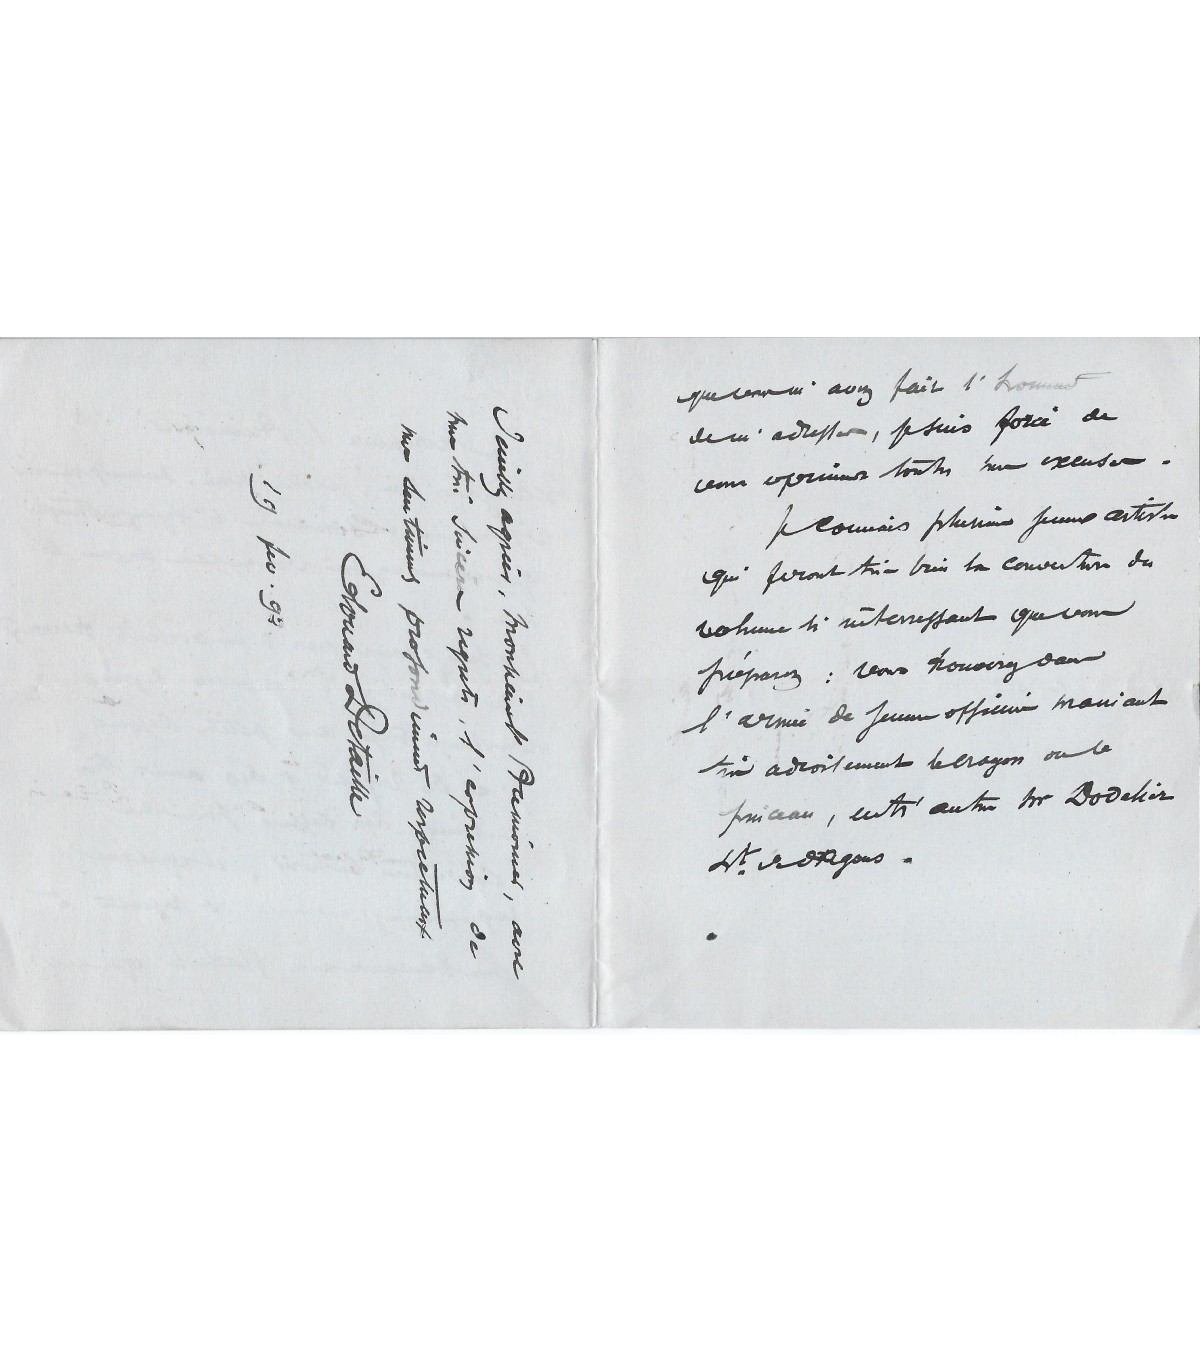 que vous m'avez fait l'honneur
de m'adresser, je suis forcé de
vous exprimer toutes mes excuses.
Je connais plusieurs jeunes artistes
qui feront très bien la couverture du
volume si intéressant que vous
préparez : vous trouverez dans
l'armée de jeunes officiers maniant
très adroitement le crayon ou le
pinceau, entr'autres Mr
Lt. de dragons.
Veuillez agréer, Monsieur l'Aumônier, avec
mes très sincères regrets, l'expression de
mes sentiments profondément respectueux
Edouard Detaille
19 fev. 92.